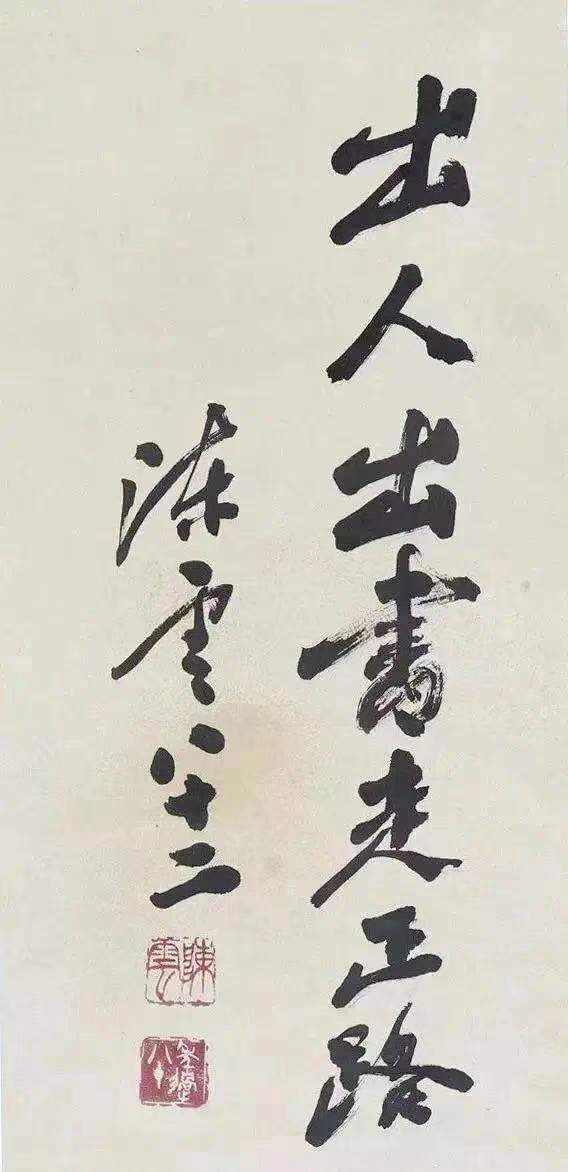 出人出書走正路
陳雲八十二
陳雲